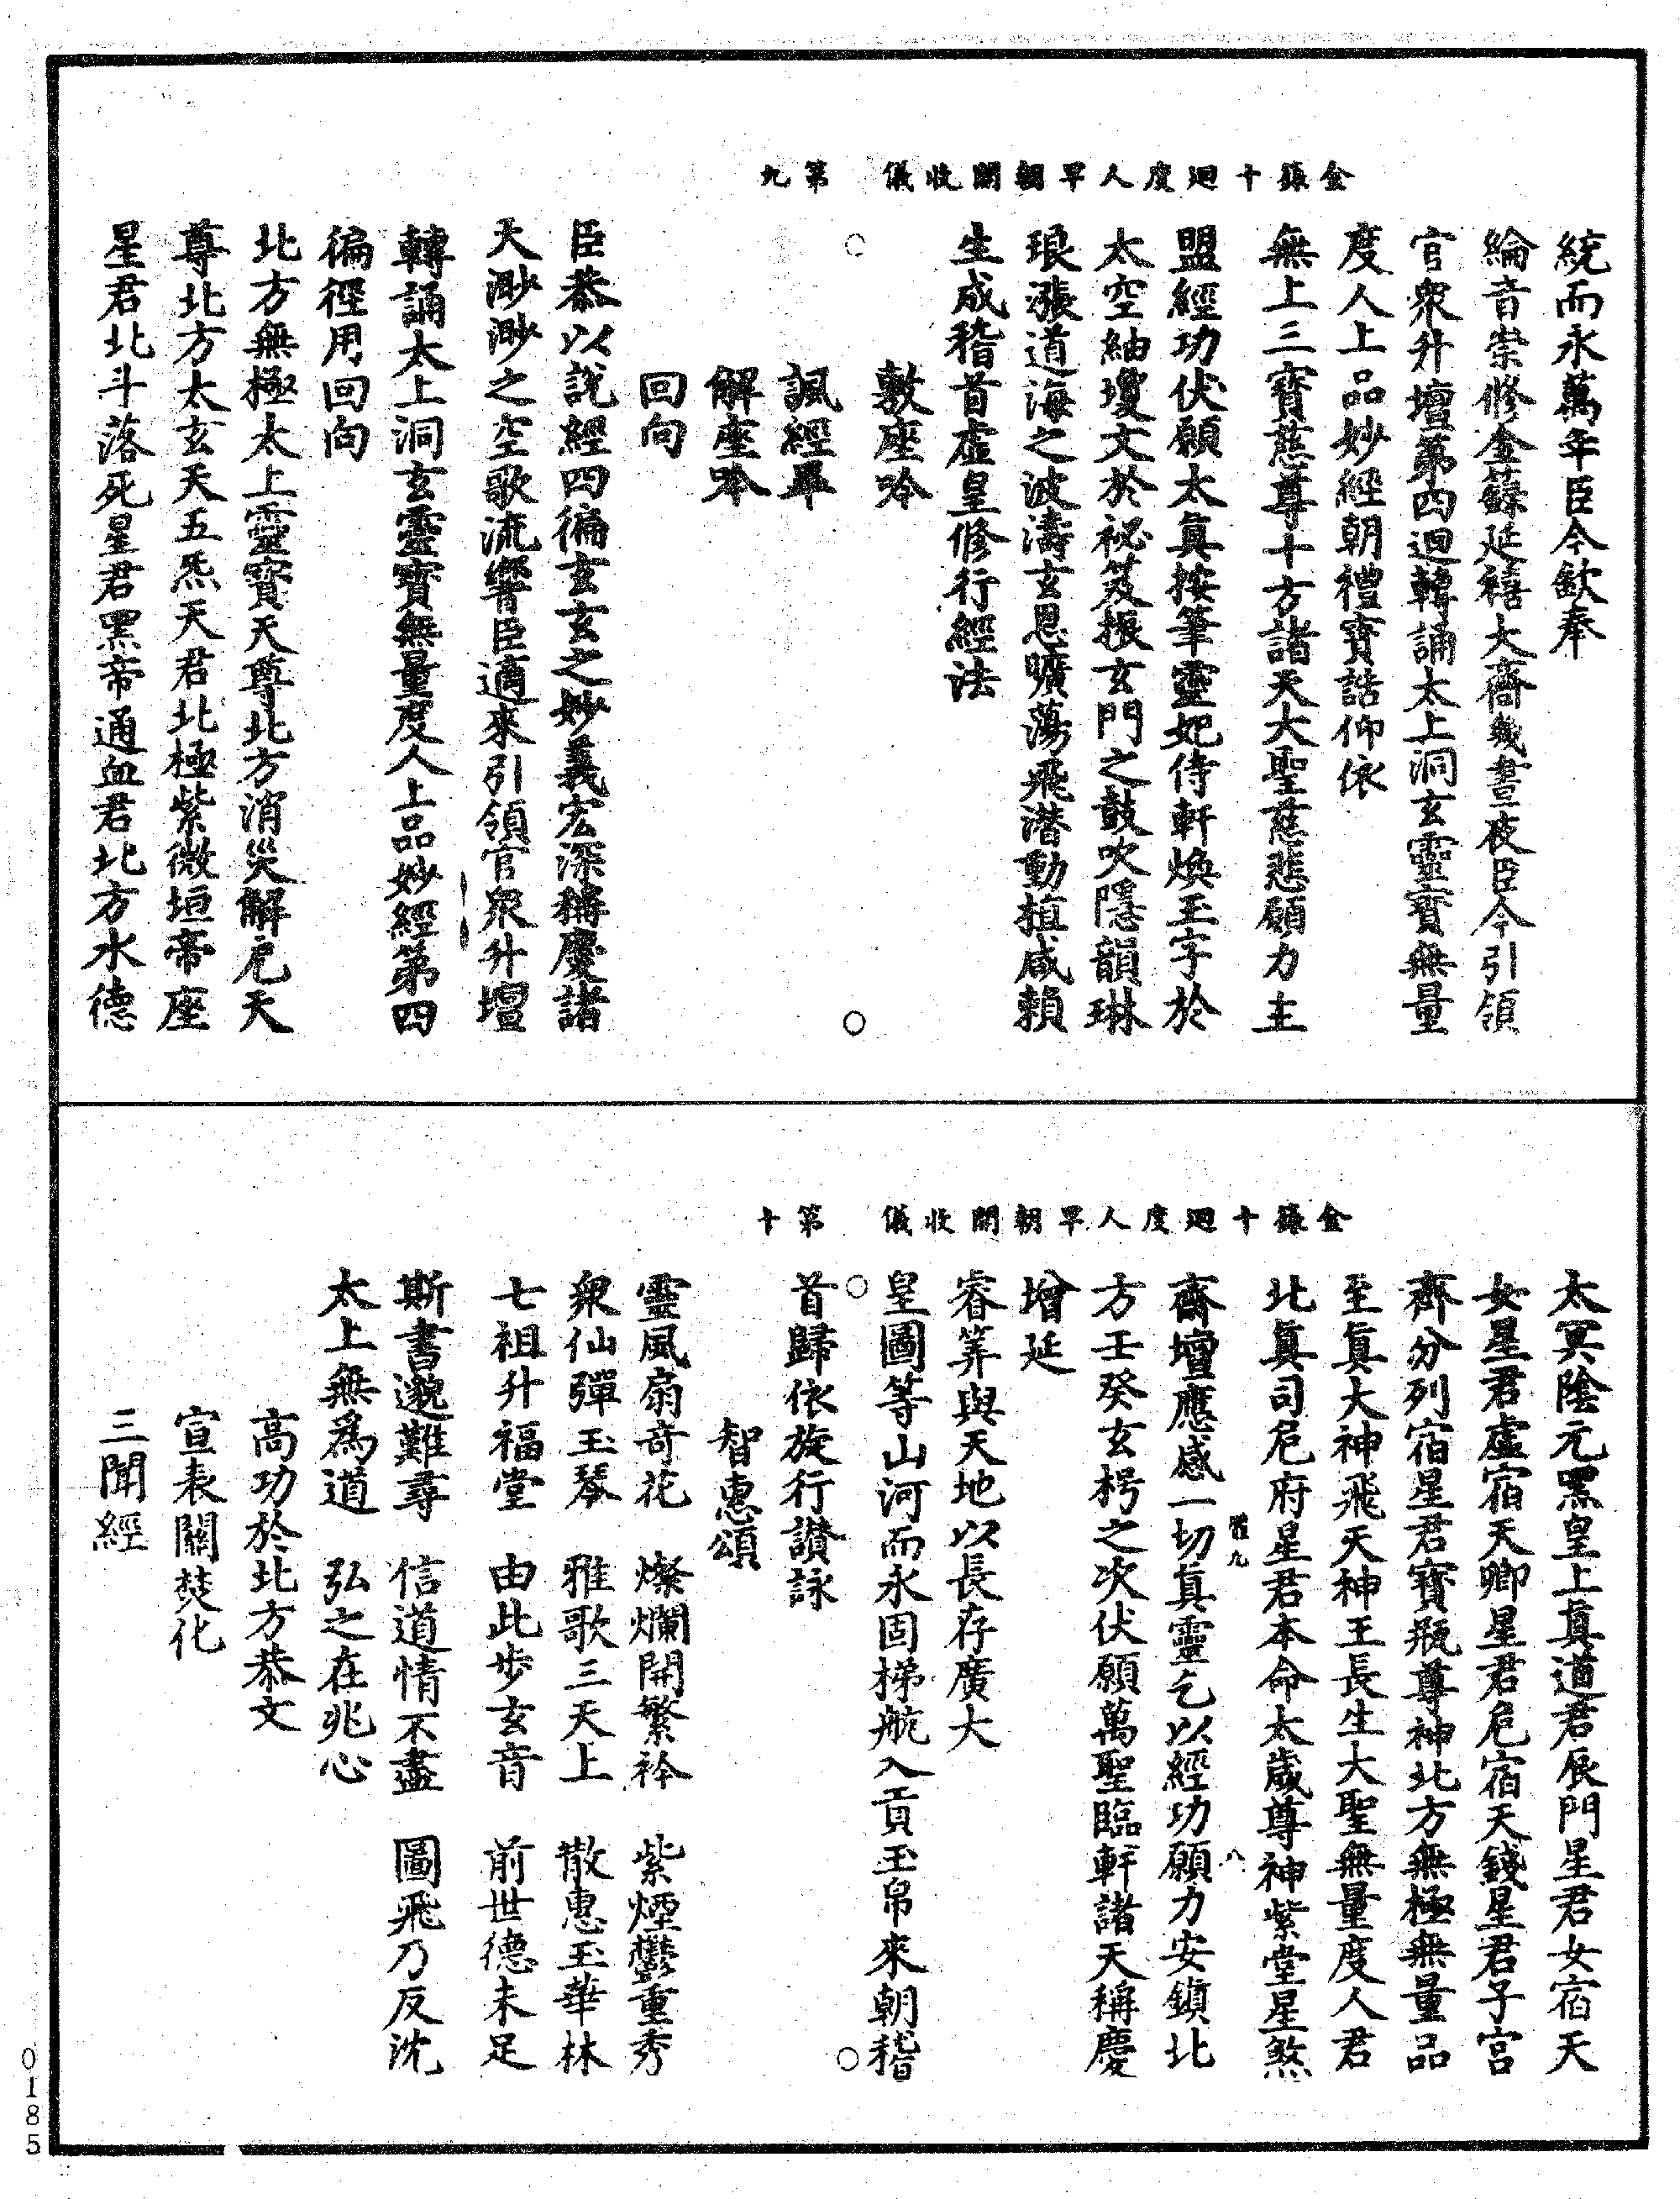 金籙十廻度人早朝開收儀　第九
統而永萬年臣今欽奉
綸音崇修金籙延禧大齋幾晝夜臣今引領
官衆升壇第四迴轉誦太上洞玄靈寶無量
度人上品妙經朝禮寶誥仰依
無上三寶慈尊十方諸天大聖慈悲願力主
盟經功伏願太眞按筆靈妃侍軒煥玉字於
太空紬瓊文於祕笈振玄門之鼓吹隱韻琳
琅漲道海之波濤玄恩曠蕩飛潛動植咸賴
生成稽首虛皇修行經法
敷座吟
諷經畢
解座吟
回向
臣恭以說經四徧玄玄之妙義宏深稱慶諸
天渺渺之空歌流響臣適來引領官衆升壇
轉誦太上洞玄靈寶無量度人上品妙經第四
徧徑用回向
北方無極太上靈寶天尊北方消災解厄天
尊北方太玄天五炁天君北極紫微垣帝座
星君北斗落死星君黑帝通血君北方水德
金籙十廻度人早朝開收儀　第十
太冥陰元黑皇上眞道君辰門星君女宿天
女星君虛宿天卿星君危宿天錢星君子宮
齊分列宿星君寶瓶尊神北方無極無量品
至眞大神飛天神王長生大聖無量度人君
北眞司危府星君本命太歲尊神紫堂星煞
八
齋壇應感一切眞靈乞以經功願力安鎮北
方壬癸玄枵之次伏願萬聖臨軒諸天稱慶
增延
睿筭與天地以長存廣大
皇圖等山河而永固梯航入貢玉帛來朝稽
首歸依旋行讃詠
智惠頌
靈風扇奇花　燦爛開繁衿　紫煙鬱重秀
衆仙彈玉琴　雅歌三天上　散惠玉華林
七祖升福堂　由此步玄音　前世德未足
斯書邈難尋　信道情不盡　圖飛乃反沈
太上無爲道　弘之在兆心
高功於北方恭文
宣表關焚化
三聞經
0185